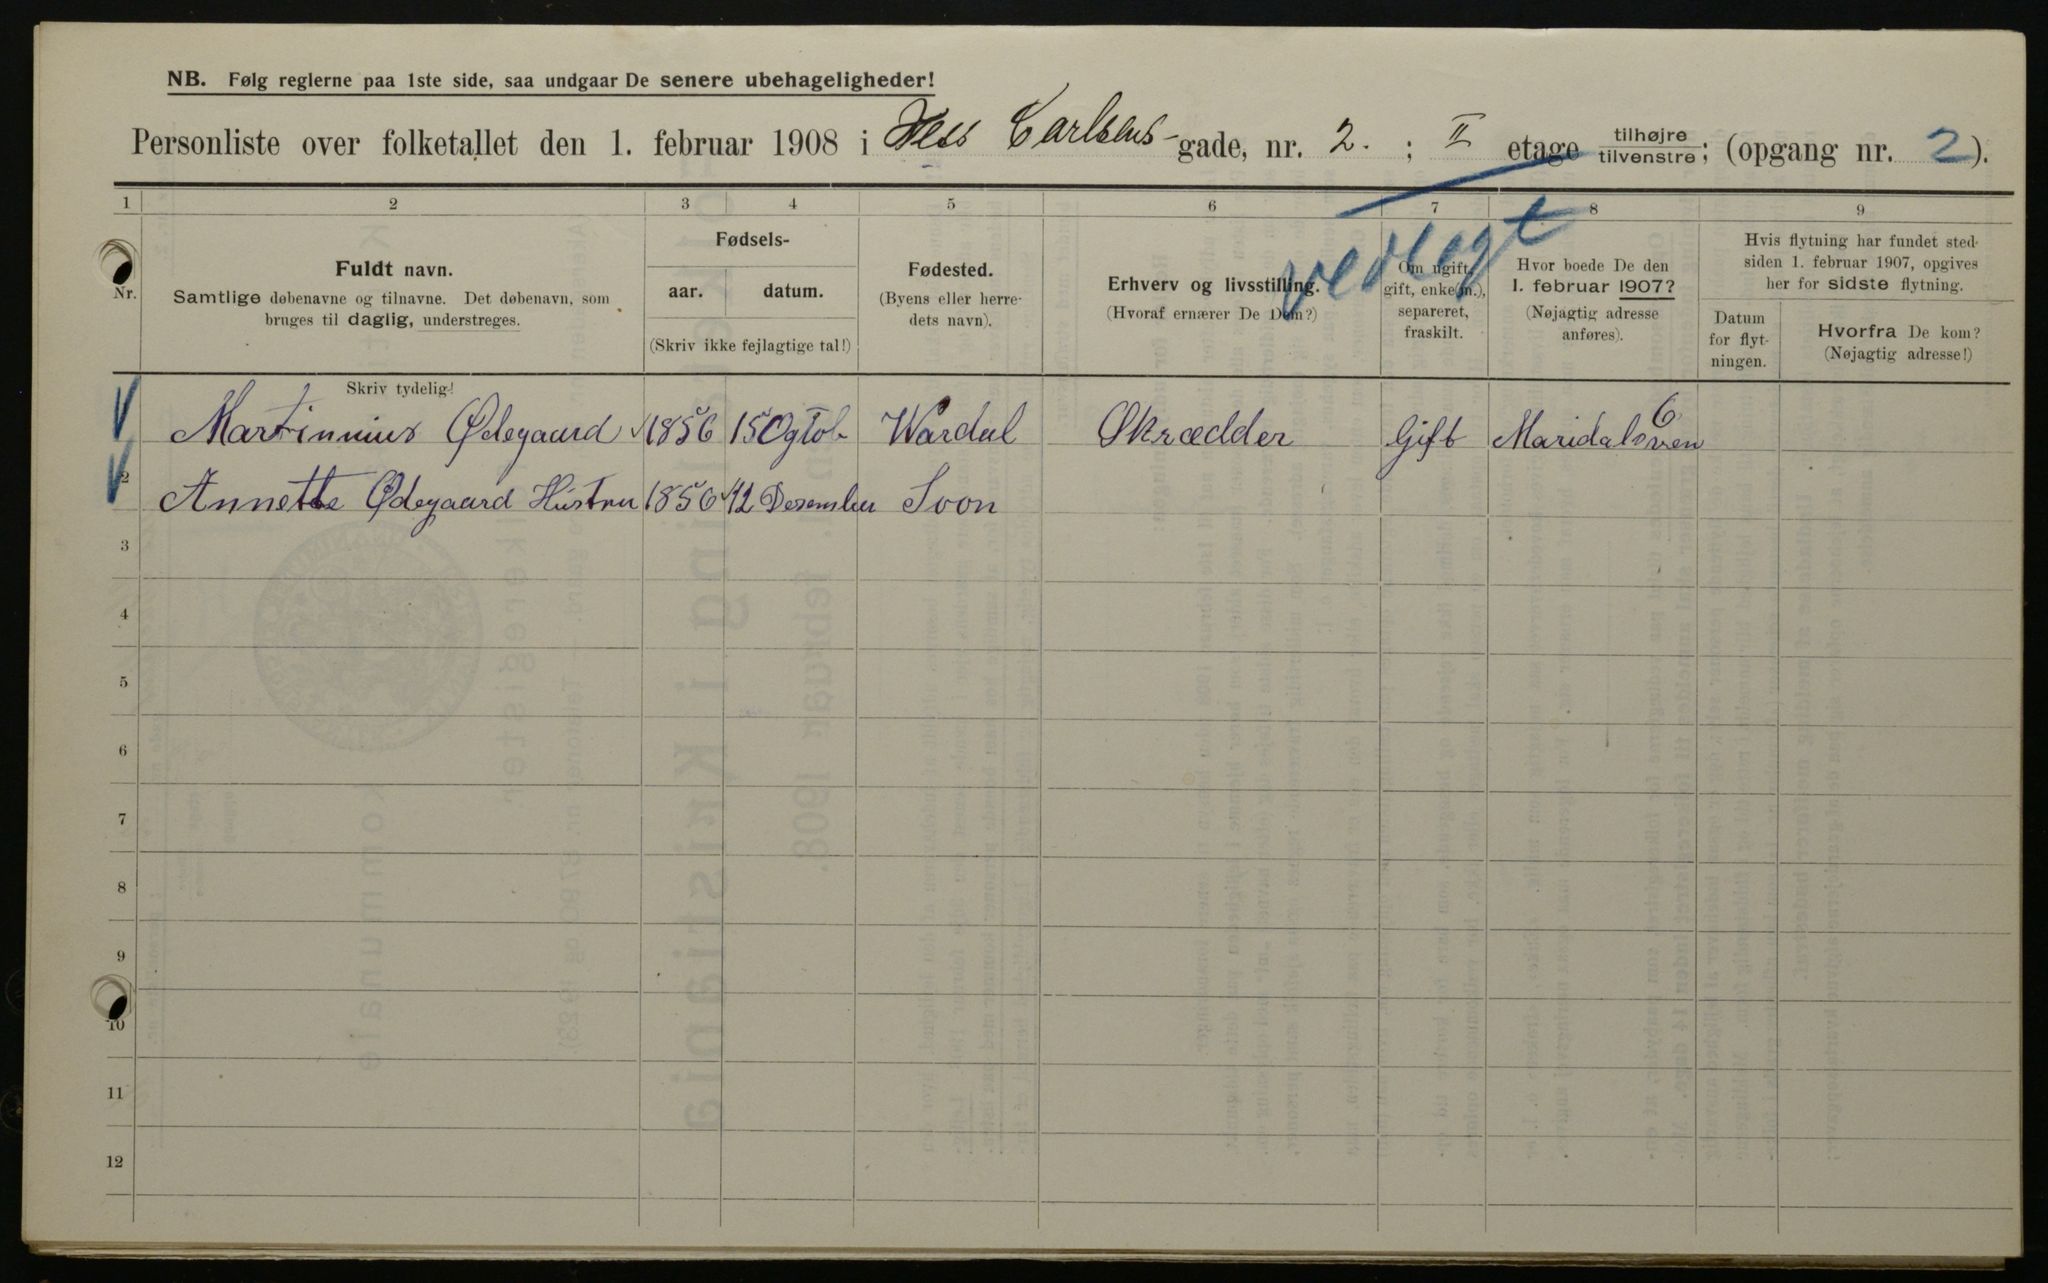 NB. Følg reglerne paa 1ste side, saa undgaar De senere ubehageligheder!
Personliste over folketallet den 1. februar 1908 i Jess Carlsens-gade, nr. 2. ; II etage tilhøjre/tilvenstre; (opgang nr. 2).
1 2 3 4 5 6 7 8 9
vedlegt
Nr.
Fuldt navn.
Samtlige døbenavne og tilnavne. Det døbenavn, som
bruges til daglig, understreges.
Skriv tydelig!
Fødsels-
aar. datum.
(Skriv ikke fejlagtige tal!)
Fødested.
(Byens eller herre-
dets navn).
Erhverv og livsstilling.
(Hvoraf ernærer De Dem?)
Om ugift,
gift, enke(m.),
separeret,
fraskilt.
Hvor boede De den
1. februar 1907?
(Nøjagtig adresse
anføres).
Hvis flytning har fundet sted
siden 1. februar 1907, opgives
her for sidste flytning.
Datum
for flyt-
ningen.
Hvorfra De kom?
(Nøjagtig adresse!)
Martinnius Ødegaard 1856 15 Ogtob Wardal Skrædder Gift Maridalsven 6
2 Annette Ødegaard Hustru 1856 12 Desember Soon
3
4
5
6
7
8
9
10
11
12